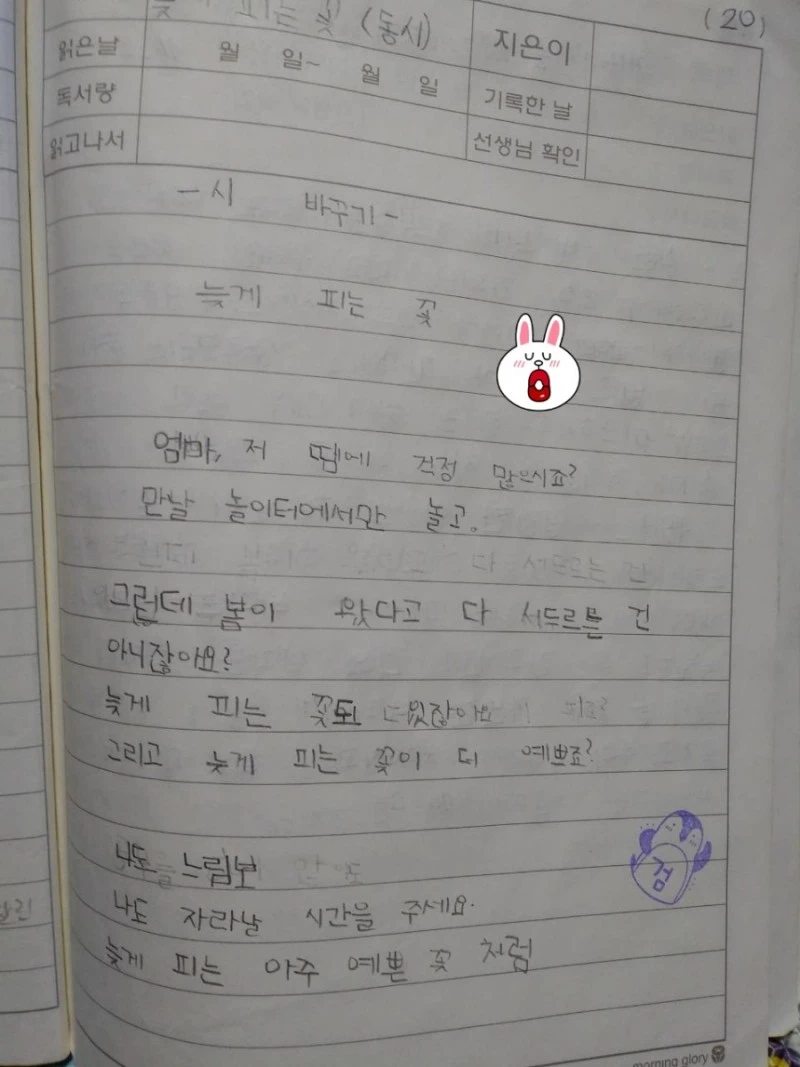 늦게 피는 꽃 (동시)
(20)
읽은날 월 일~ 월 일 지은이
독서량 기록한 날
읽고나서 선생님 확인
- 시 바꾸기 -
늦게 피는 꽃
엄마, 저 땜에 걱정 많으시죠?
만날 놀이터에서만 놀고.
그런데 봄이 왔다고 다 서두르는 건
아니잖아요?
늦게 피는 꽃도 있잖아요
그리고 늦게 피는 꽃이 더 예쁘죠?
나도 느림보
나도 자라날 시간을 주세요.
늦게 피는 아주 예쁜 꽃 처럼
검
morning glory